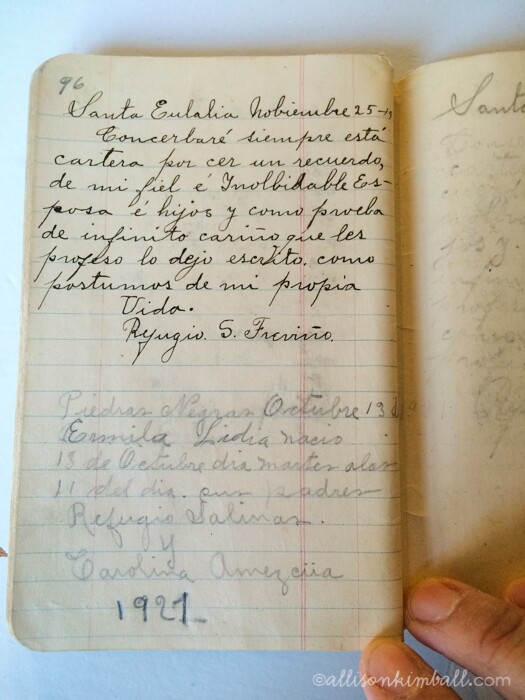 96
Santa Eulalia Nobiembre 25-19
Concerbaré siempre está
cartera por cer un recuerdo,
de mi fiel é Inolbidable Es-
posa é hijos y como prueba
de infinito cariño que les
profeso lo dejo escrito. como
postumos de mi propia
Vida.
Refugio. S. Treviño.
Piedras Negras Octubre 13
Ermila Lidia nacio
13 de Octubre dia martes alas
11 del dia. sus padres
Refugio Salinas.
y
Carolina Amezcüa
1921
Santa
©allisonkimball.com